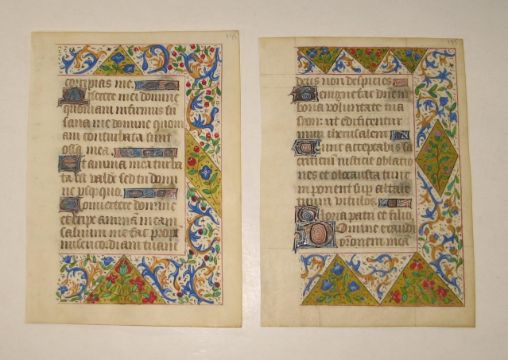 corripias me.
Miserere mei domine
quoniam infirmus sum
sana me domine quoni
am conturbata sunt
ossa mea.
Et anima mea turba
ta est valde sed tu domi
ne usquequo.
Convertere domine
et eripe animam meam
salvum me fac propt
misericordiam tuam
deus non despicies
Benigne fac domine
bona voluntate tua
syon ut edificentur
muri iherusalem
Tunc acceptabis sa
crificium iusticie oblatio
nes et olocausta tunc
inponent sup altare
tuum vitulos
Gloria patri et filio
Domine exaudi
orationem mea